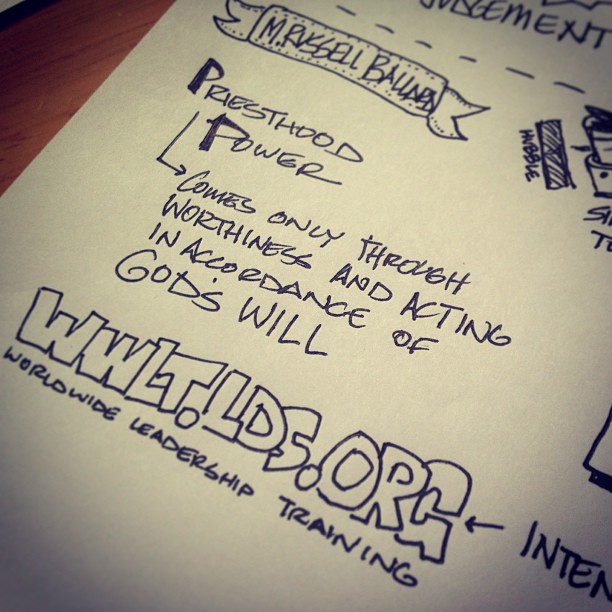 JUDGEMENT
M. RUSSELL BALLARD
PRIESTHOOD
POWER
COMES ONLY THROUGH
WORTHINESS AND ACTING
IN ACCORDANCE OF
GOD'S WILL
WWLT.LDS.ORG
WORLDWIDE LEADERSHIP TRAINING
INTEN
HUBBLE